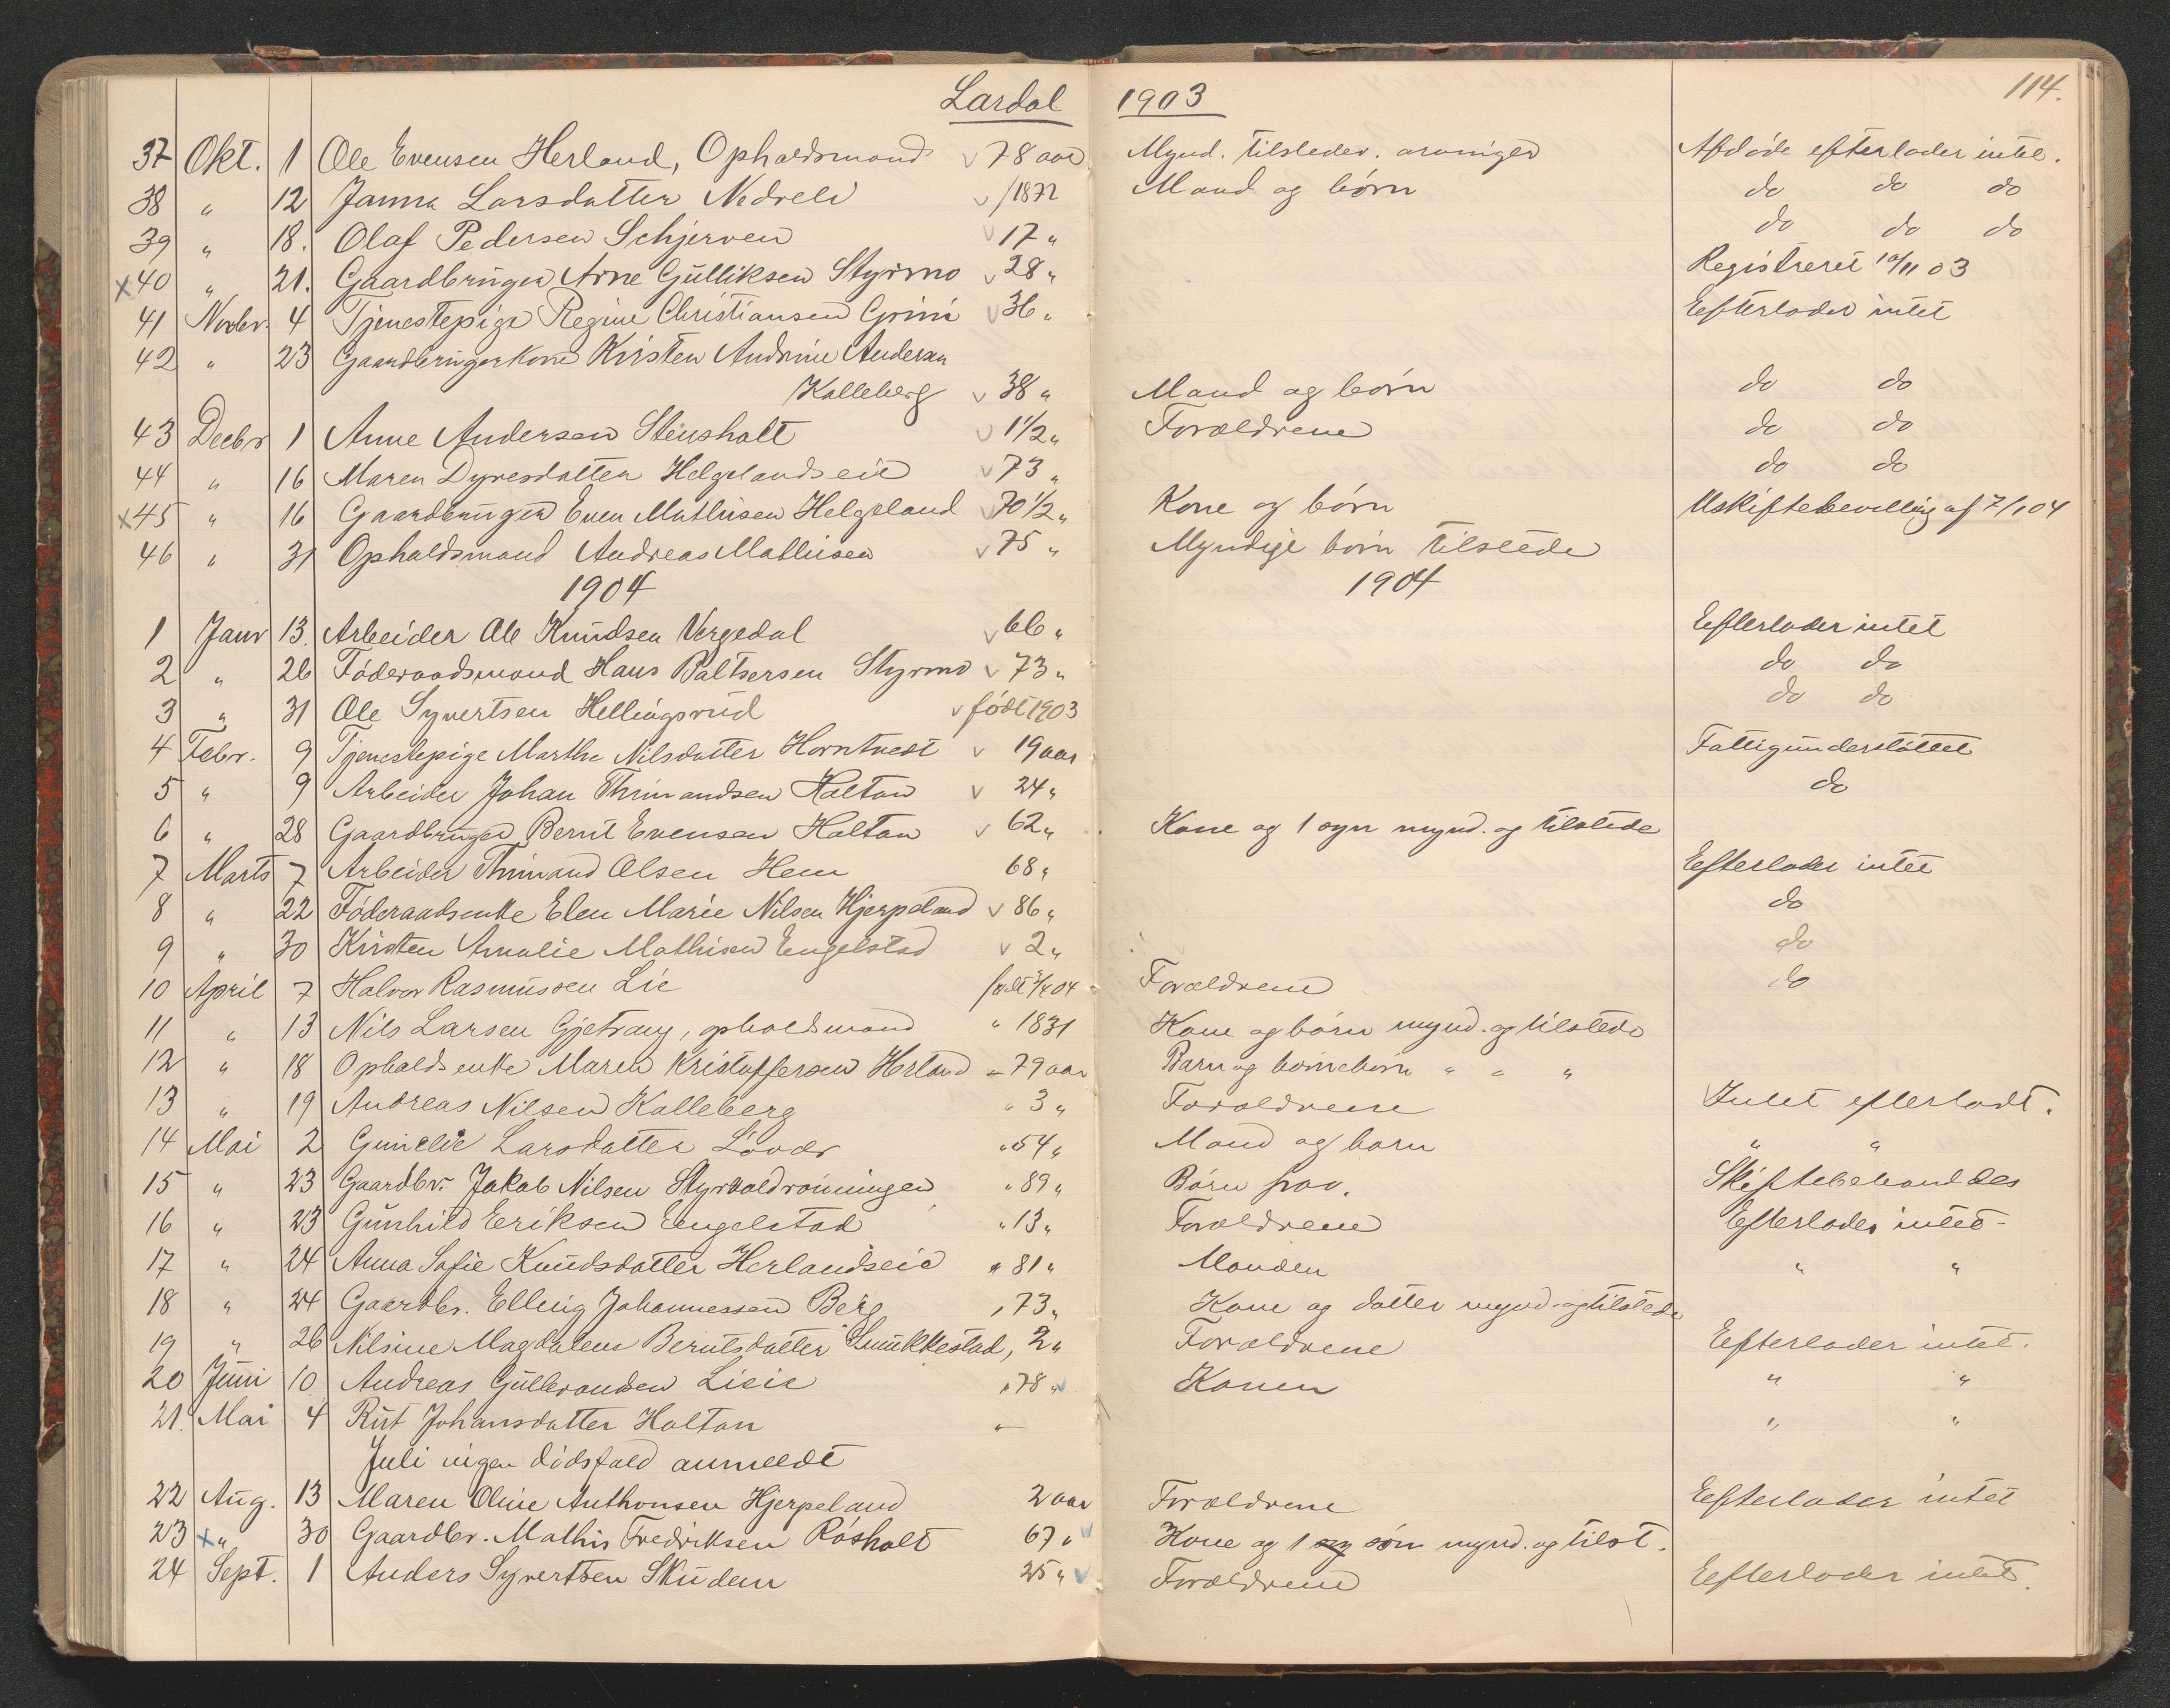 Lardal 1903 114.
37 Okt. 1 Ole Evensen Herland, Opholdsmand v 78 aar Mynd. tilstedev. arvinger Afdøde efterlader intet.
38 " 12 Janna Larsdatter Nedreli v /1872 Mand og børn do do do
39 " 18. Olaf Pedersen Schjerven v 17 " do do do
x40 " 21. Gaardbruger Arne Gulliksen Styrmo v 28 " Registreret 10/11 03
41 Novbr. 4 Tjenestepige Regine Christiansen Grini v 36 " Efterlader intet
42 " 23 Gaardbrugerkone Kirsten Andrine Andersen
Kalleberg v 38 " Mand og børn do do
43 Decbr 1 Anne Andersen Stensholt v 1 1/2 " Forældrene do do
44 " 16 Maren Dyresdatter Helgelandseie v 73 " do do
x45 " 16 Gaardbruger Even Mathisen Helgeland v 70 1/2 " Kone og børn Uskiftebevilling af 7/1 04
46 " 31 Opholdsmand Andreas Mathisen v 75 " Myndige børn tilstede
1904 1904
1 Janr 13. Arbeider Ole Knudsen Vergedal v 66 " Efterlader intet
2 " 26 Føderaadsmand Hans Baltsersen Styrmo v 73 " do do
3 " 31 Ole Syvertsen Hellingsrud v født 1903 do do
4 Febr. 9 Tjenestepige Marthe Nilsdatter Horntvedt v 19 aar Fattigunderstøttet
5 " 9 Arbeider Johan Thrinandsen Holtan v 24 " do
6 " 28 Gaardbruger Bernt Evensen Holtan v 62 " Kone og 1 søn mynd. og tilstede
7 Marts 7 Arbeider Thrinand Olsen Hem 68 " Efterlader intet
8 " 22 Føderaadsenke Elen Marie Nilsen Hjerpeland v 86 " do
9 " 30 Kirsten Amalie Mathisen Engelstad v 2 " do
10 April 7 Halvor Rasmussen Lie født 3/4 04 Forældrene do
11 " 13 Nils Larsen Gjetrang, opholdsmand " 1831 Kone og børn mynd. og tilstede
12 " 18 Opholdsenke Maren Kristoffersen Herland " 79 aar Barn og børnebørn " " "
13 " 19 Andreas Nilsen Kalleberg " 3 " Forældrene Intet efterladt.
14 Mai 2 Gunelie Larsdatter Løvås " 54 " Mand og barn " "
15 " 23 Gaardbr. Jakob Nilsen Styrvoldrønningen " 89 " Børn frav. Skiftebehandles
16 " 23 Gunhild Eriksen Engelstad " 13 " Forældrene Efterlader intet -
17 " 24 Anna Sofie Knudsdatter Herlandseie " 81 " Manden " "
18 " 24 Gaardbr. Elling Johannessen Berg " 73 " Kone og datter mynd. og tilstede
19 " 26 Nilsine Magdalene Berntsdatter Smukkestad, 2 " Forældrene Efterlader intet.
20 Juni 10 Andreas Gulbrandsen Lieie " 78 " v Konen " "
21. Mai 4 Rut Johansdatter Holtan " " "
Juli ingen dødsfald anmeldt
22 Aug. 13 Maren Oline Anthonsen Hjerpeland 2 aar Forældrene Efterlader intet
23 x " 30 Gaardbr. Mathis Fredriksen Røsholt 67 " v Kone og 1 søn mynd. og tilst.
24 Sept. 1 Anders Syvertsen Skudem 25 " v Forældrene Efterlader intet.